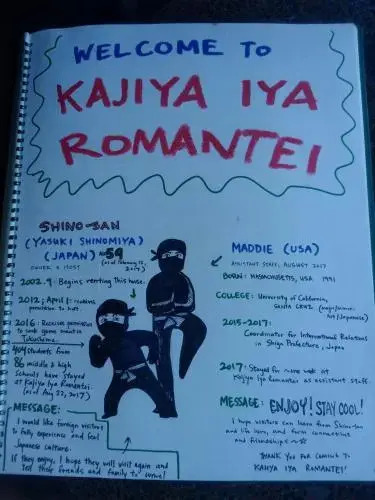 WELCOME TO
KAJIYA IYA
ROMANTEI
SHINO-SAN
(YASUKI SHINOMIYA)
(JAPAN) 59
(as of February 12, 2017)
OWNER & HOST
2002.9: Begins renting this house.
2012; April: receives
permission to host
2016: Receives permission
to host guests in
Tokushima.
404 students from
86 middle & high
schools have stayed
at Kajiya Iya Romantei.
(as of Aug 22, 2017)
MESSAGE:
I would like foreign visitors
to fully experience and feel
Japanese culture.
If they enjoy, I hope they will visit again and
tell their friends and family to come!
MADDIE (USA)
ASSISTANT STAFF, AUGUST 2017
BORN: MASSACHUSETTS, USA 1991
COLLEGE: University of California,
SANTA CRUZ
Art/Japanese)
2015-2017:
Coordinator for International Relations
in Shiga Prefecture, Japan
2017: Stayed for one week at
Kajiya Iya Romantei as assistant staff.
MESSAGE: ENJOY! STAY COOL!
I hope visitors can learn from Shino-san
and life here, and form connections
and friendships
THANK YOU FOR COMING TO
KAJIYA IYA ROMANTEI!